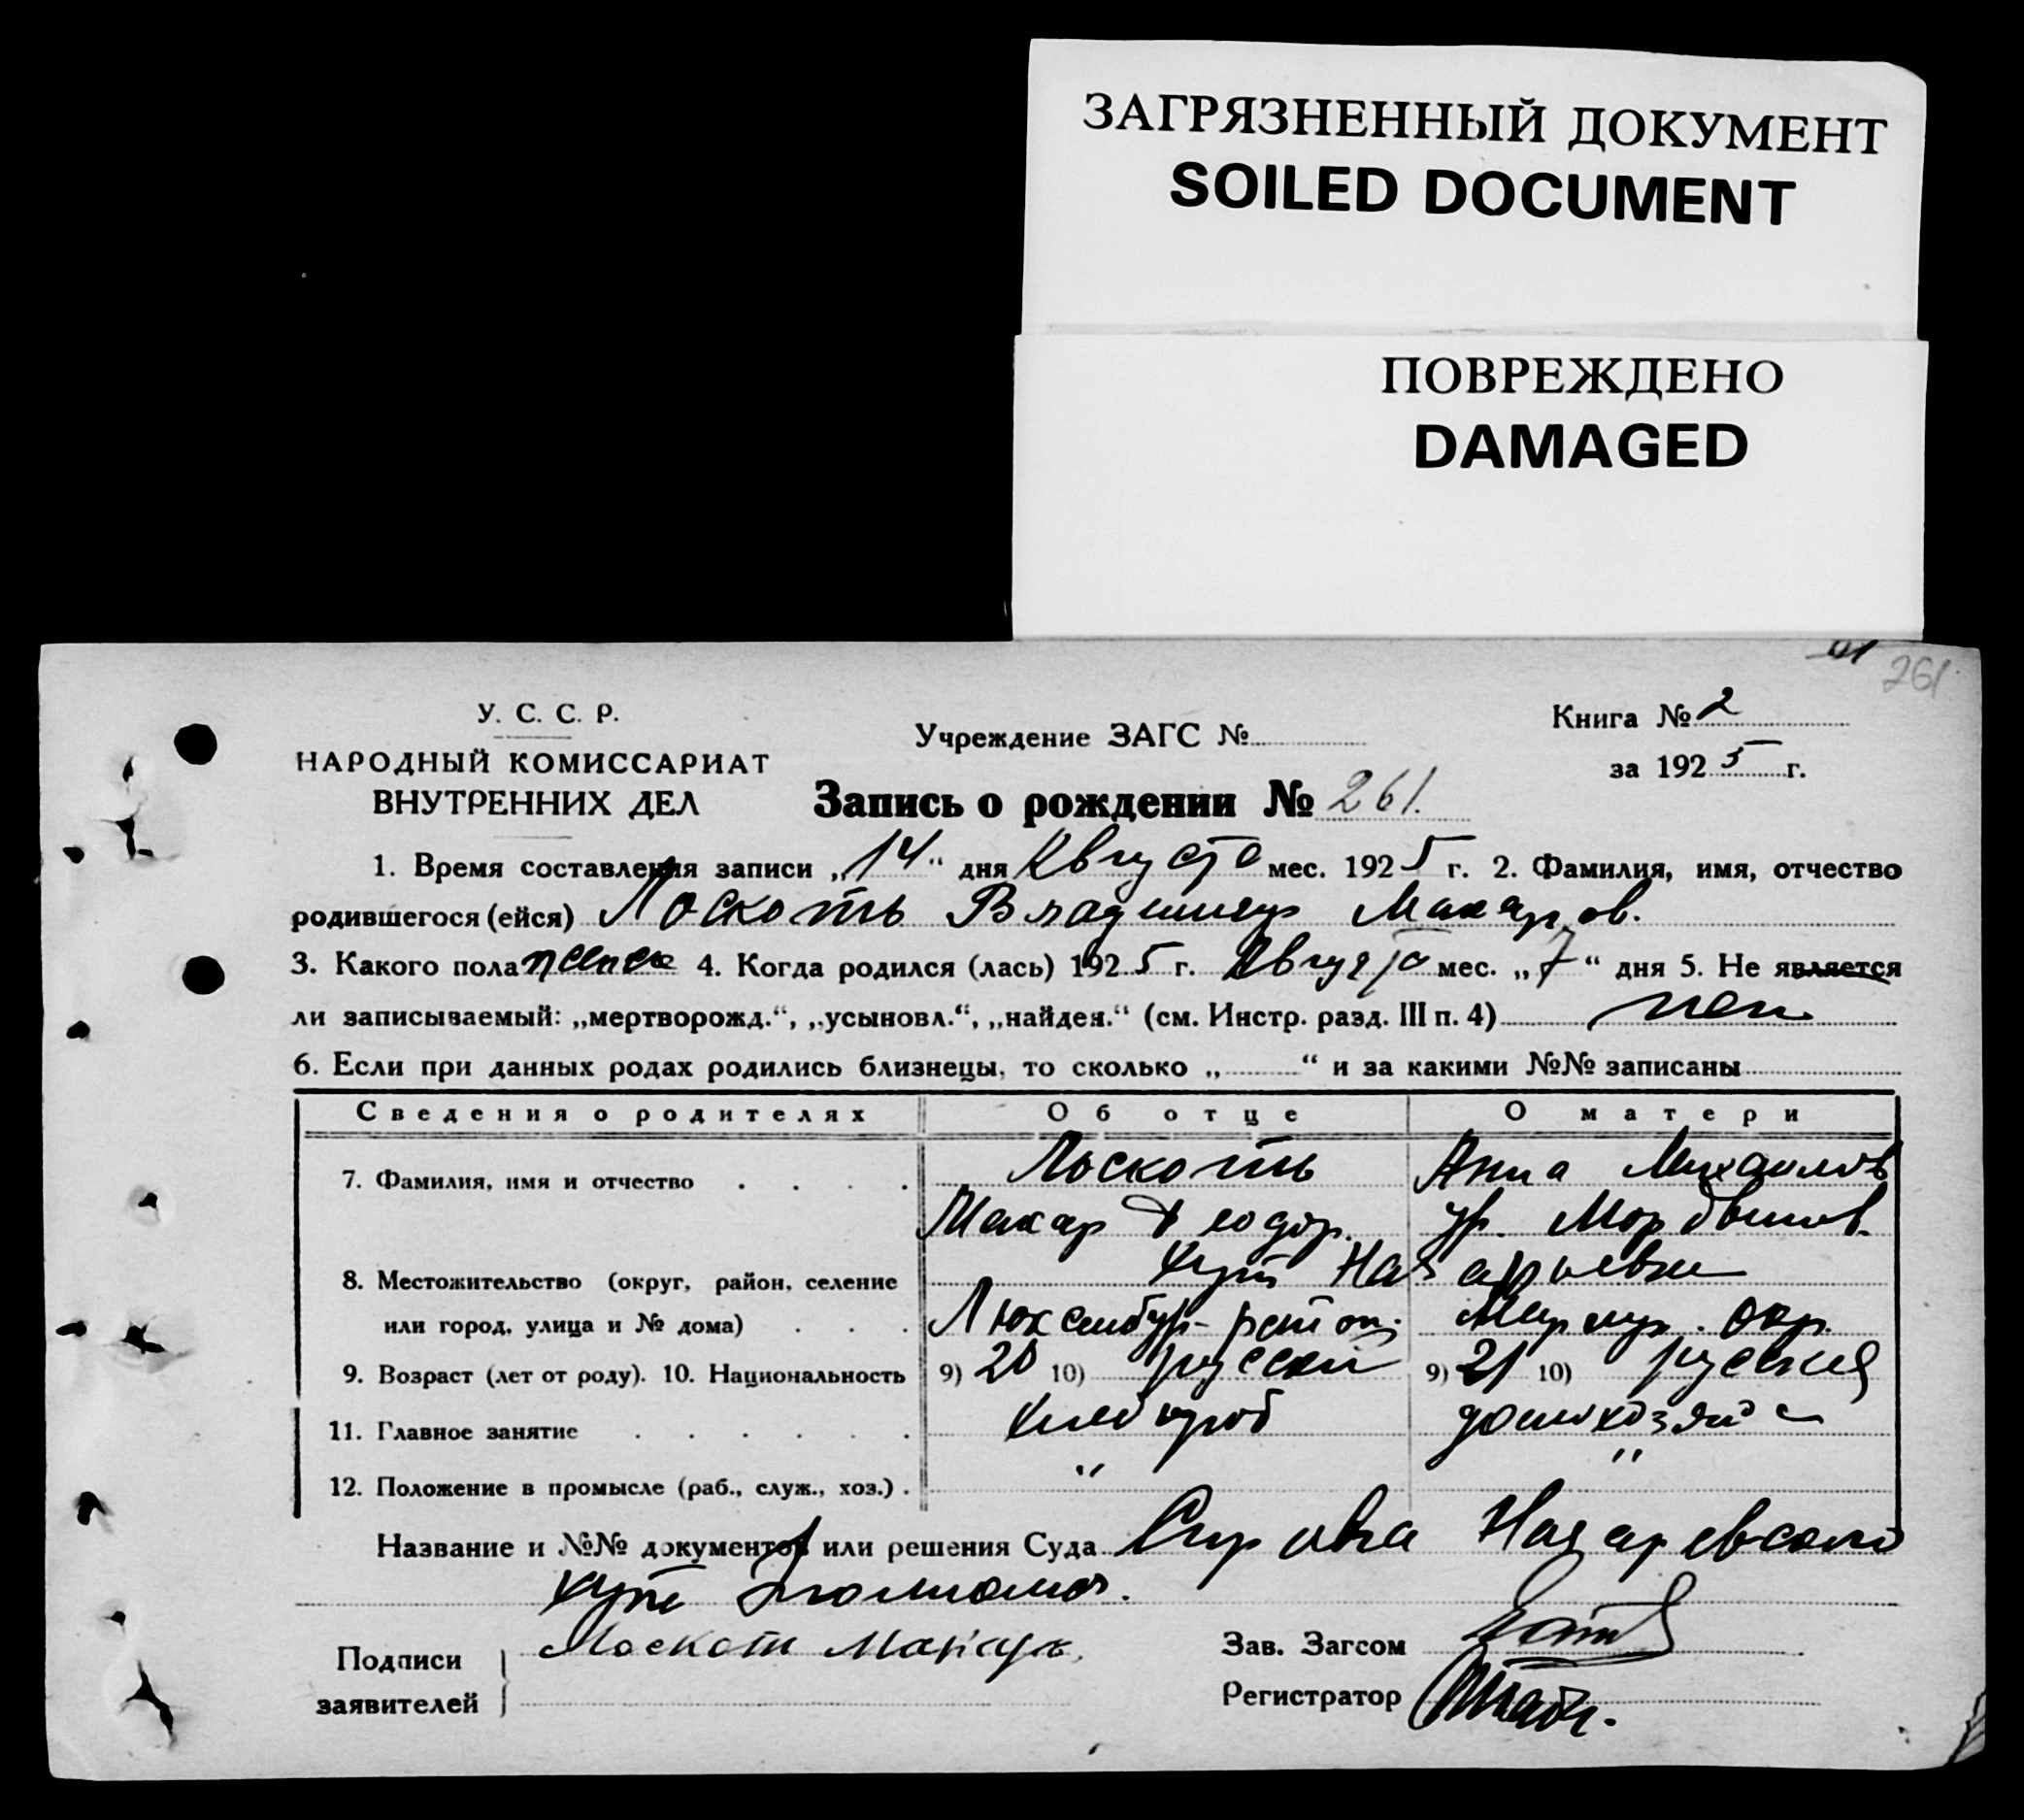 ЗАГРЯЗНЕННЫЙ ДОКУМЕНТ
SOILED DOCUMENT
ПОВРЕЖДЕНО
DAMAGED
261
У. С. С. Р.
НАРОДНЫЙ КОМИССАРИАТ
ВНУТРЕННИХ ДЕЛ
Учреждение ЗАГС №
Книга № 2
за 1925 г.
Запись о рождении № 261.
1. Время составления записи „14“ дня Августа мес. 1925 г. 2. Фамилия, имя, отчество
родившегося (ейся) Лоскоть Владимир Макаров.
3. Какого пола 4. Когда родился (лась) 1925 г. Августа мес. „7“ дня 5. Не является
ли записываемый: „мертворожд.“, „усыновл.“, „найден.“ (см. Инстр. разд. III п. 4) нет
6. Если при данных родах родились близнецы, то сколько „ “ и за какими №№ записаны
Сведения о родителях Об отце О матери
7. Фамилия, имя и отчество Лоскоть Анна Михайлов
Макар Феодор. ур. Мордвинов.
8. Местожительство (округ, район, селение хут Назарьевки
или город, улица и № дома) Люксембур- район. Мариуп. окр.
9. Возраст (лет от роду). 10. Национальность 9) 20 10) русский 9) 21 10) русская
11. Главное занятие хлебороб домохозяйс
12. Положение в промысле (раб., служ., хоз.) " "
Название и №№ документов или решения Суда Справка Назаревского
хут
Подписи заявителей Лоскоть Макаръ.
Зав. Загсом
Регистратор